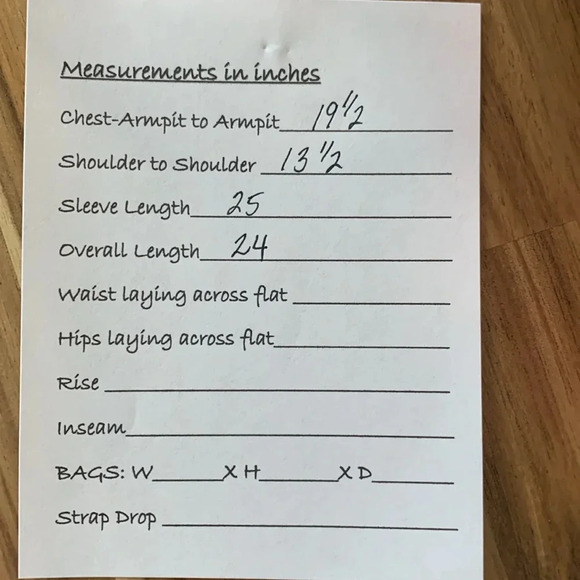 Measurements in inches
Chest-Armpit to Armpit 19 1/2
Shoulder to Shoulder 13 1/2
Sleeve Length 25
Overall Length 24
Waist laying across flat
Hips laying across flat
Rise
Inseam
BAGS: W______X H______X D______
Strap Drop